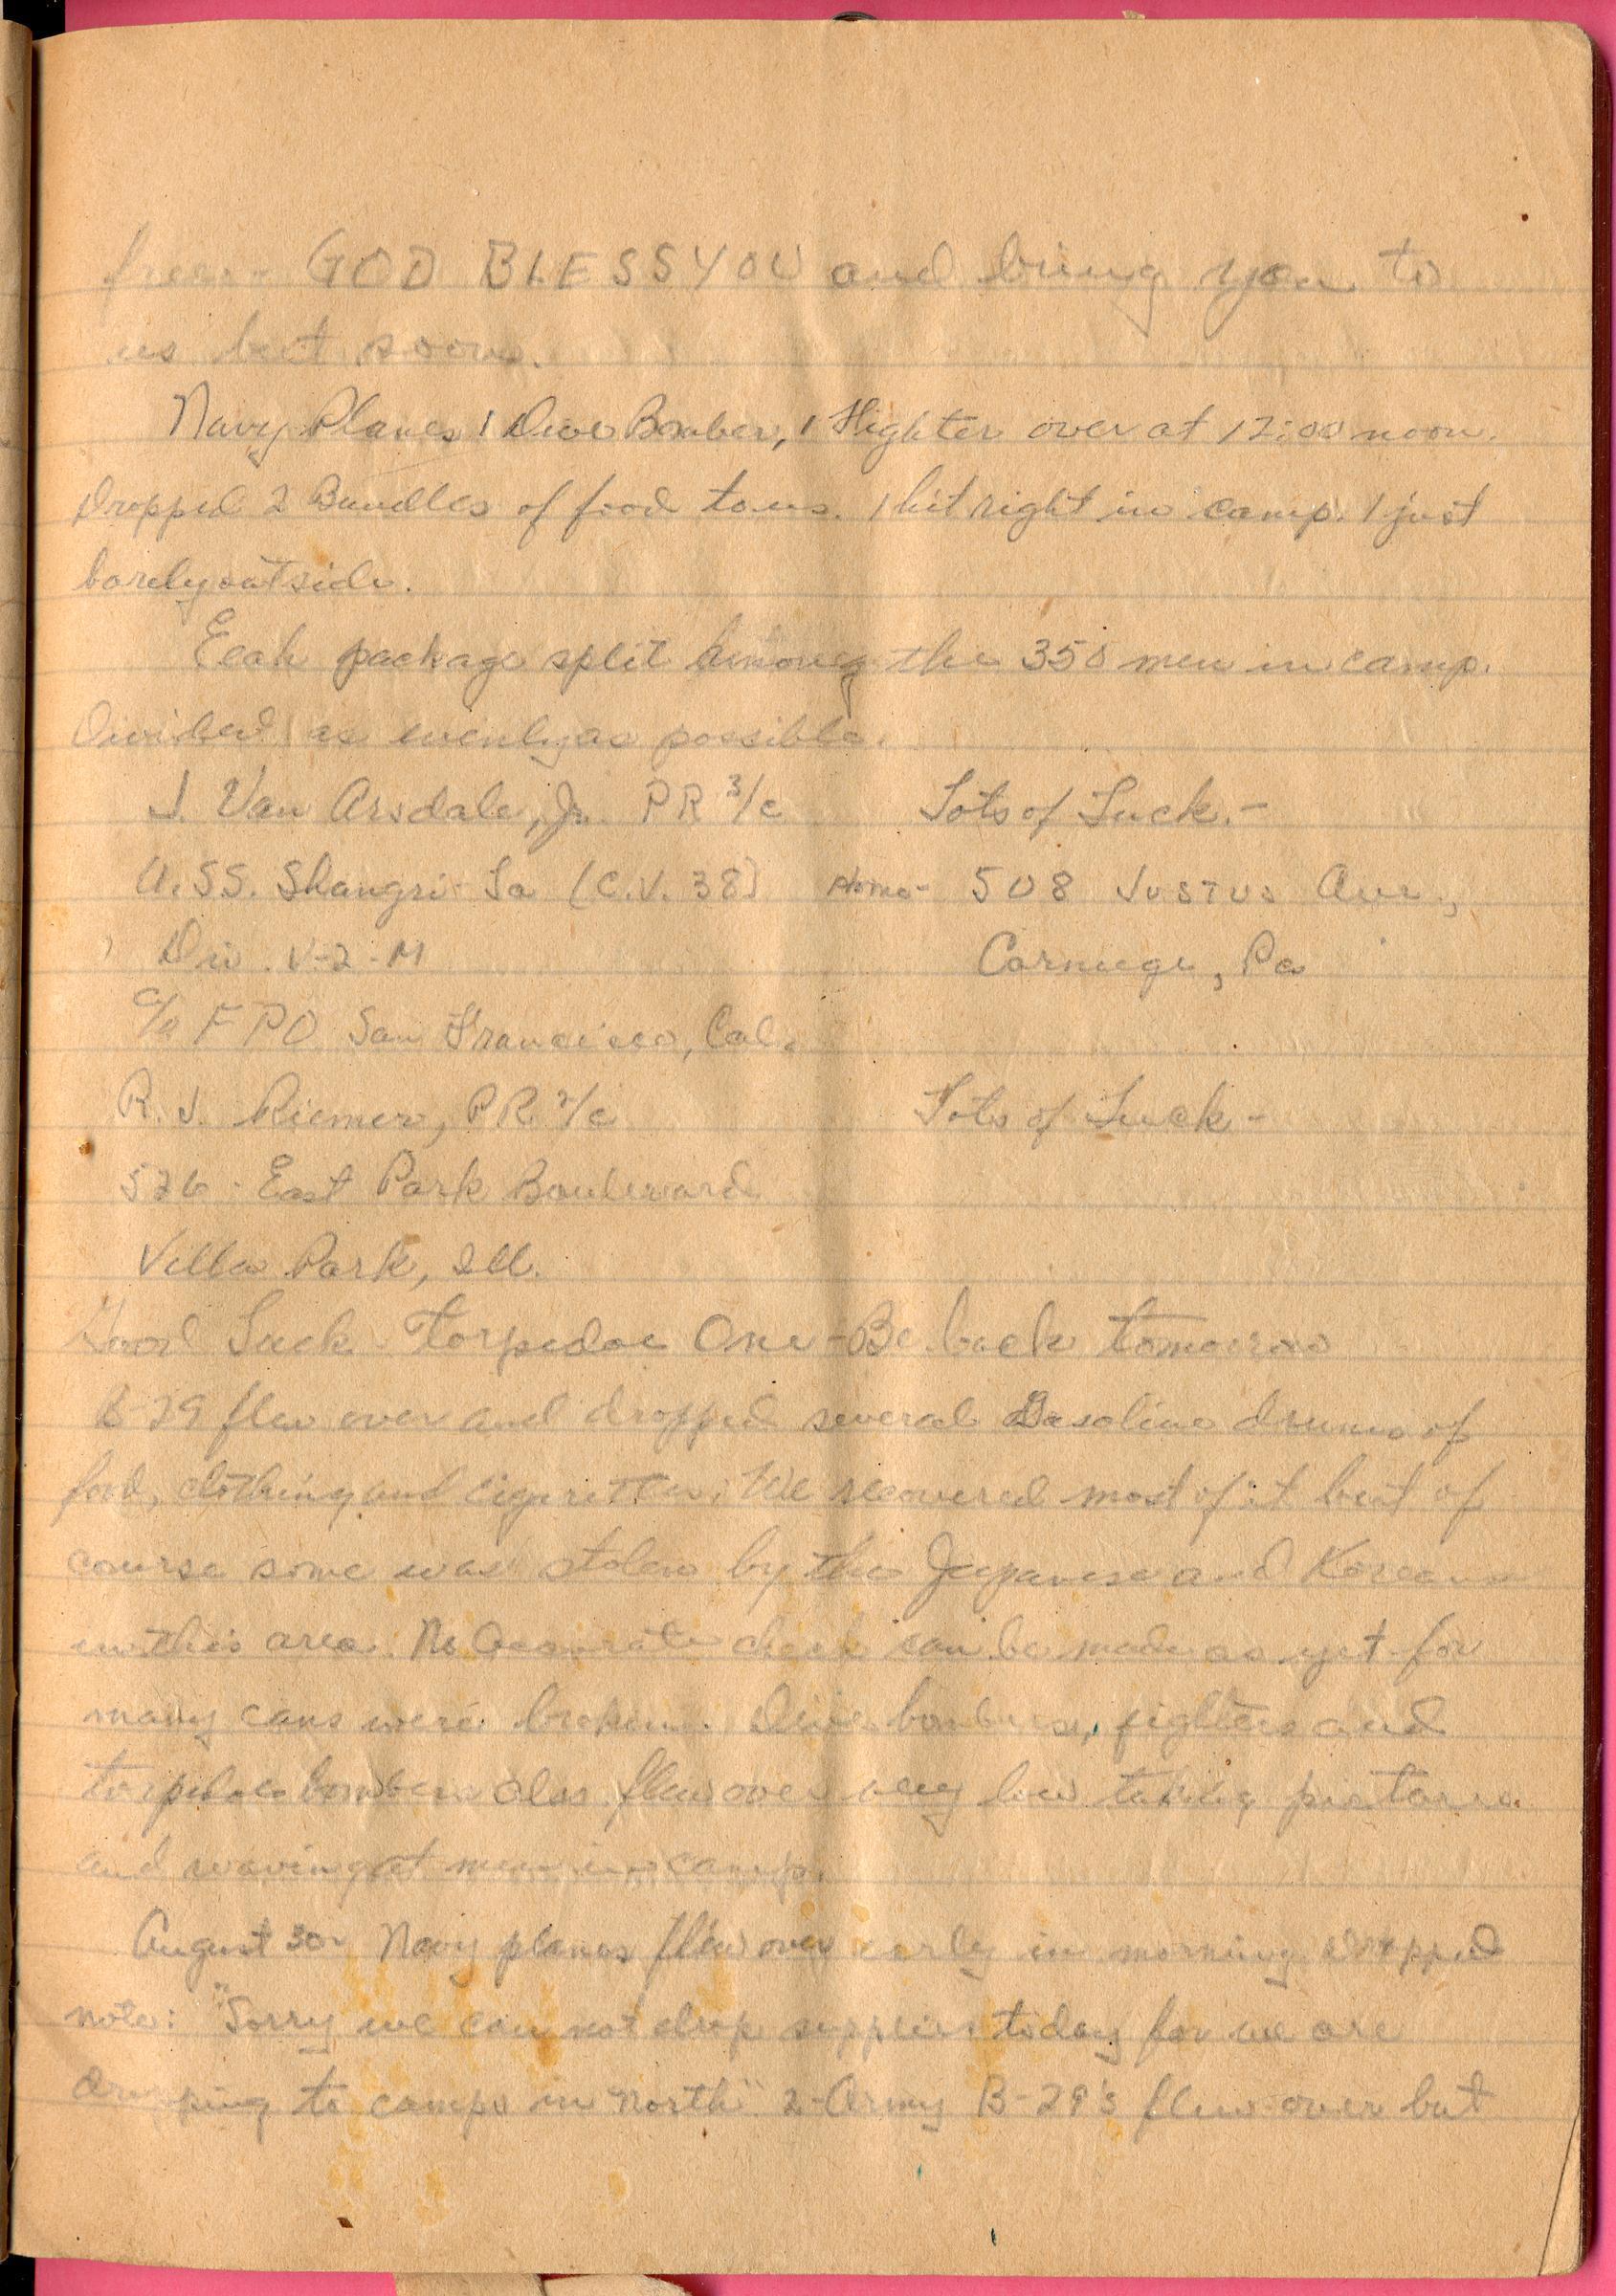 free - GOD BLESS YOU and bring you to
us but soon.
Navy Planes 1 Dive Bomber, 1 Fighter over at 12:00 noon.
Dropped 2 Bundles of food to us. 1 hit right in camp. 1 just
barely outside.
Each package split among the 350 men in camp.
Divided as evenly as possible.
J. Van Arsdale, Jr. PR 3/c Lots of Luck. -
U.S.S. Shangri-La (C.V. 38) Home - 508 Justus Ave.,
Div. V-2-M Carnegie, Pa
c/o FPO San Francisco, Cal.
R. J. Riemer, PR 2/c Lots of Luck -
526 - East Park Boulevard
Villa Park, Ill.
Good Luck - Torpedoe One - Be back tomorrow
B 29 flew over and dropped several Gasoline drums of
food, clothing and cigarettes. We recovered most of it but of
course some was stolen by the Japanese and Koreans
in this area. No Accurate check can be made as yet for
many cans were broken. Dive bombers, fighters and
torpedoe bombers also flew over very low taking pictures
and waving at men in camp.
August 30 - Navy planes flew over early in morning dropped
note: "Sorry we can not drop supplies today for we are
dropping to camps in north" 2 - Army B-29's flew over but